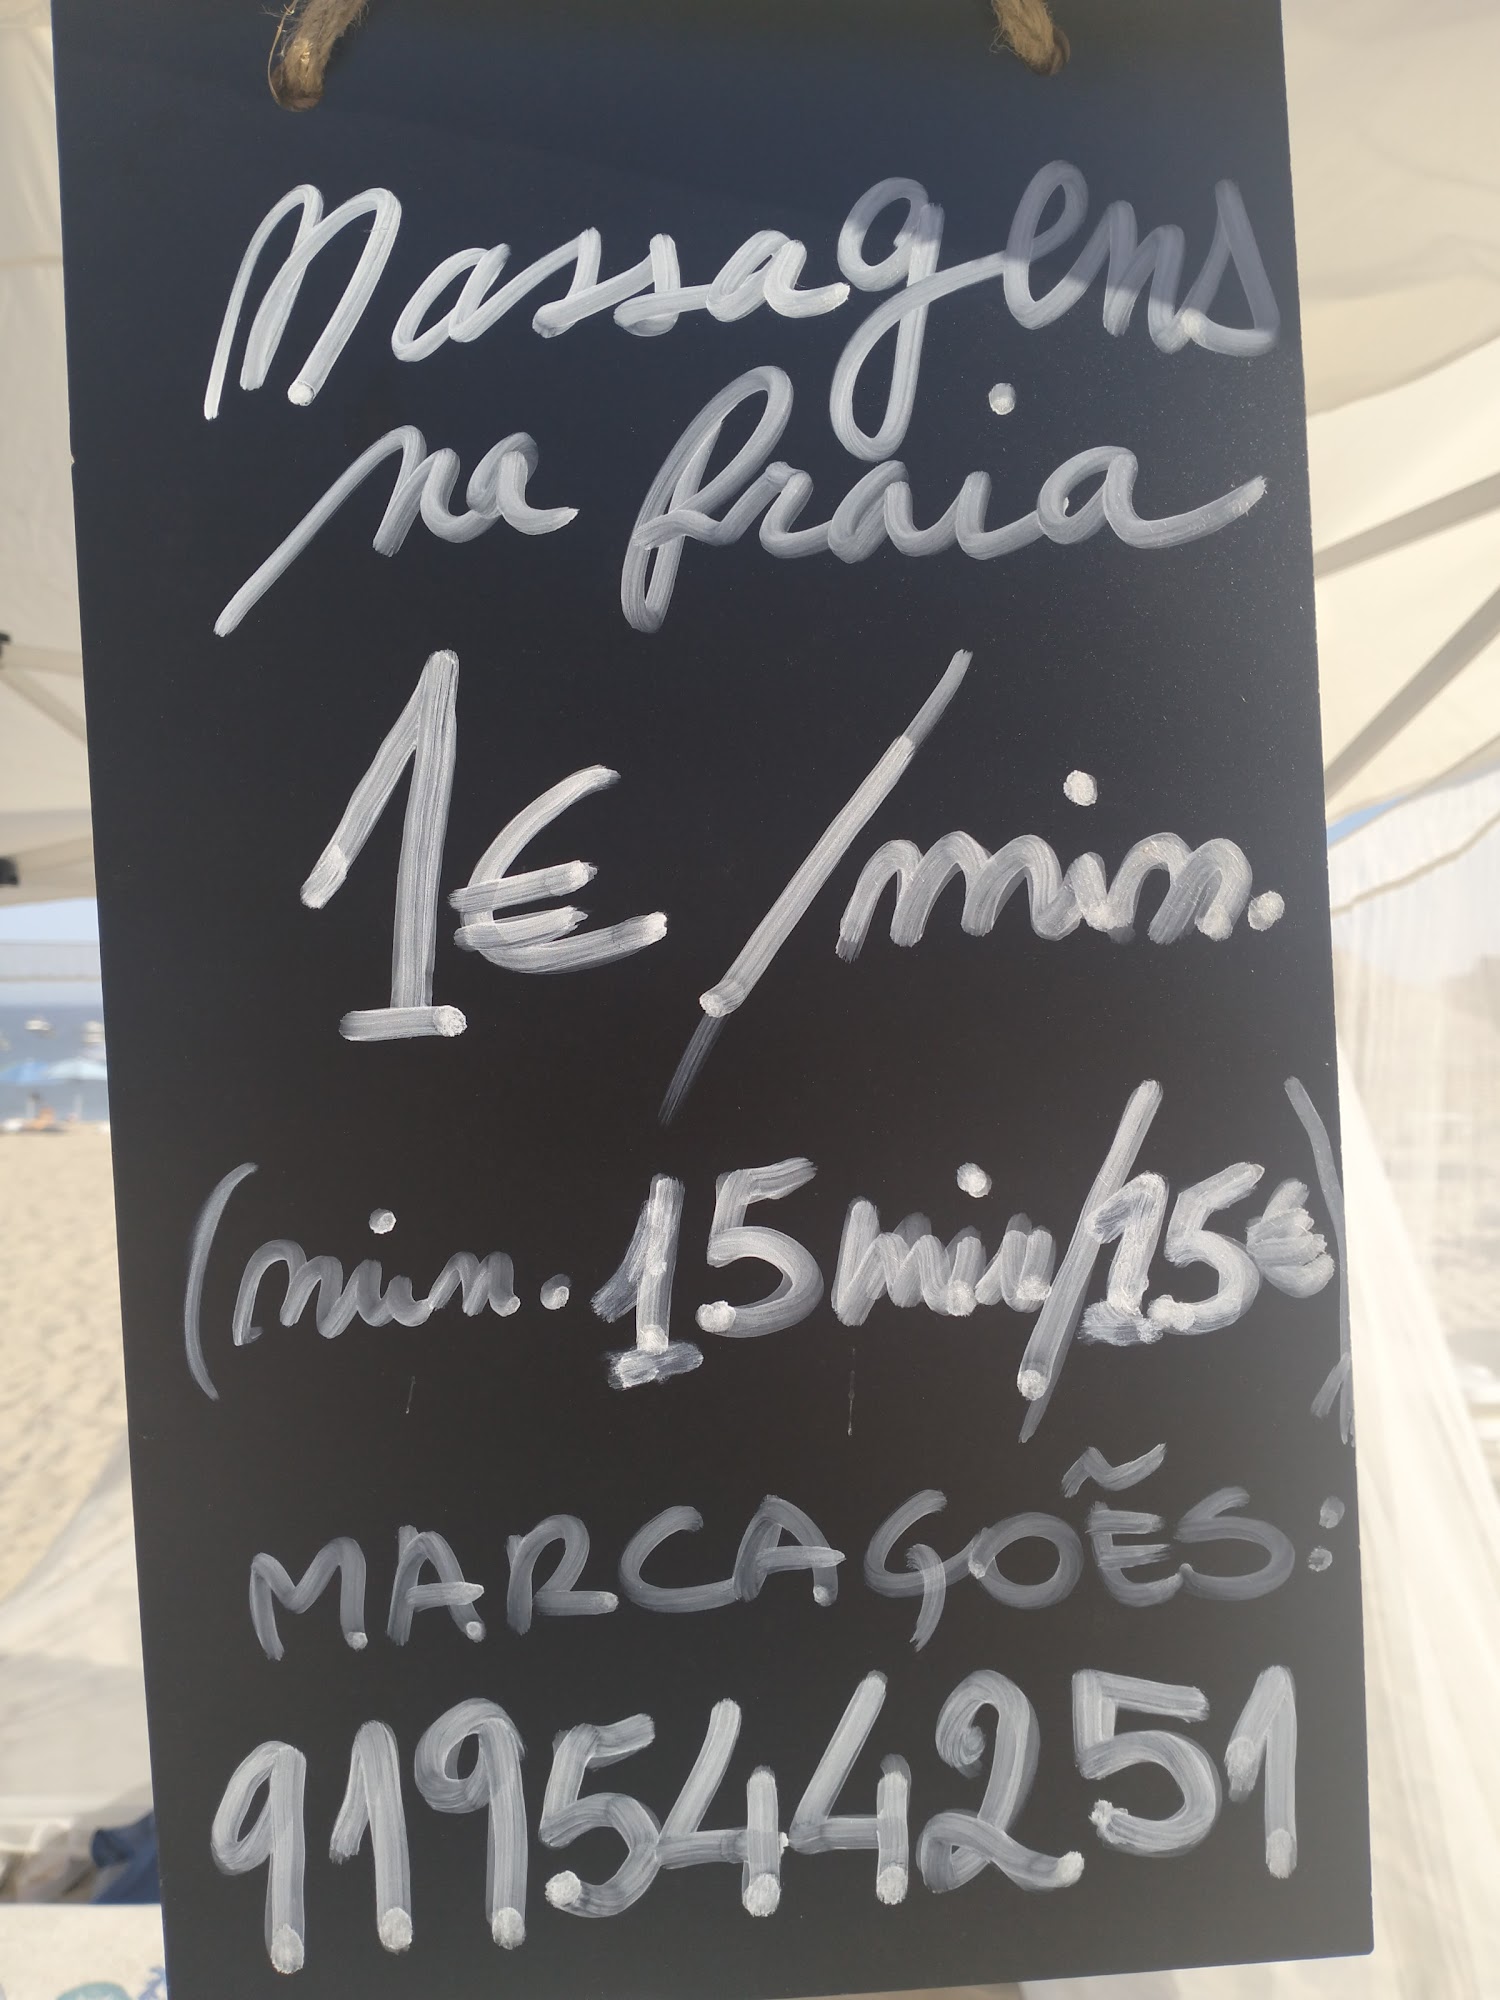 Massagens
na praia
1€/min.
(min. 15 min/15€)
MARCAÇÕES:
919544251